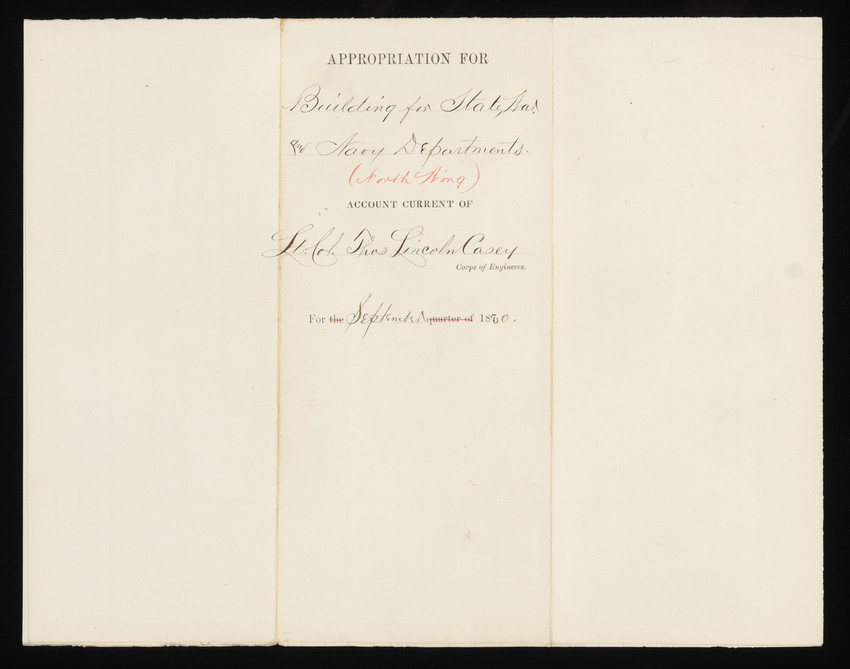 APPROPRIATION FOR
Building for State, War
and Navy Departments.
(North Wing)
ACCOUNT CURRENT OF
Lt. Col. Thos Lincoln Casey
Corps of Engineers.
For the September quarter of 1880.